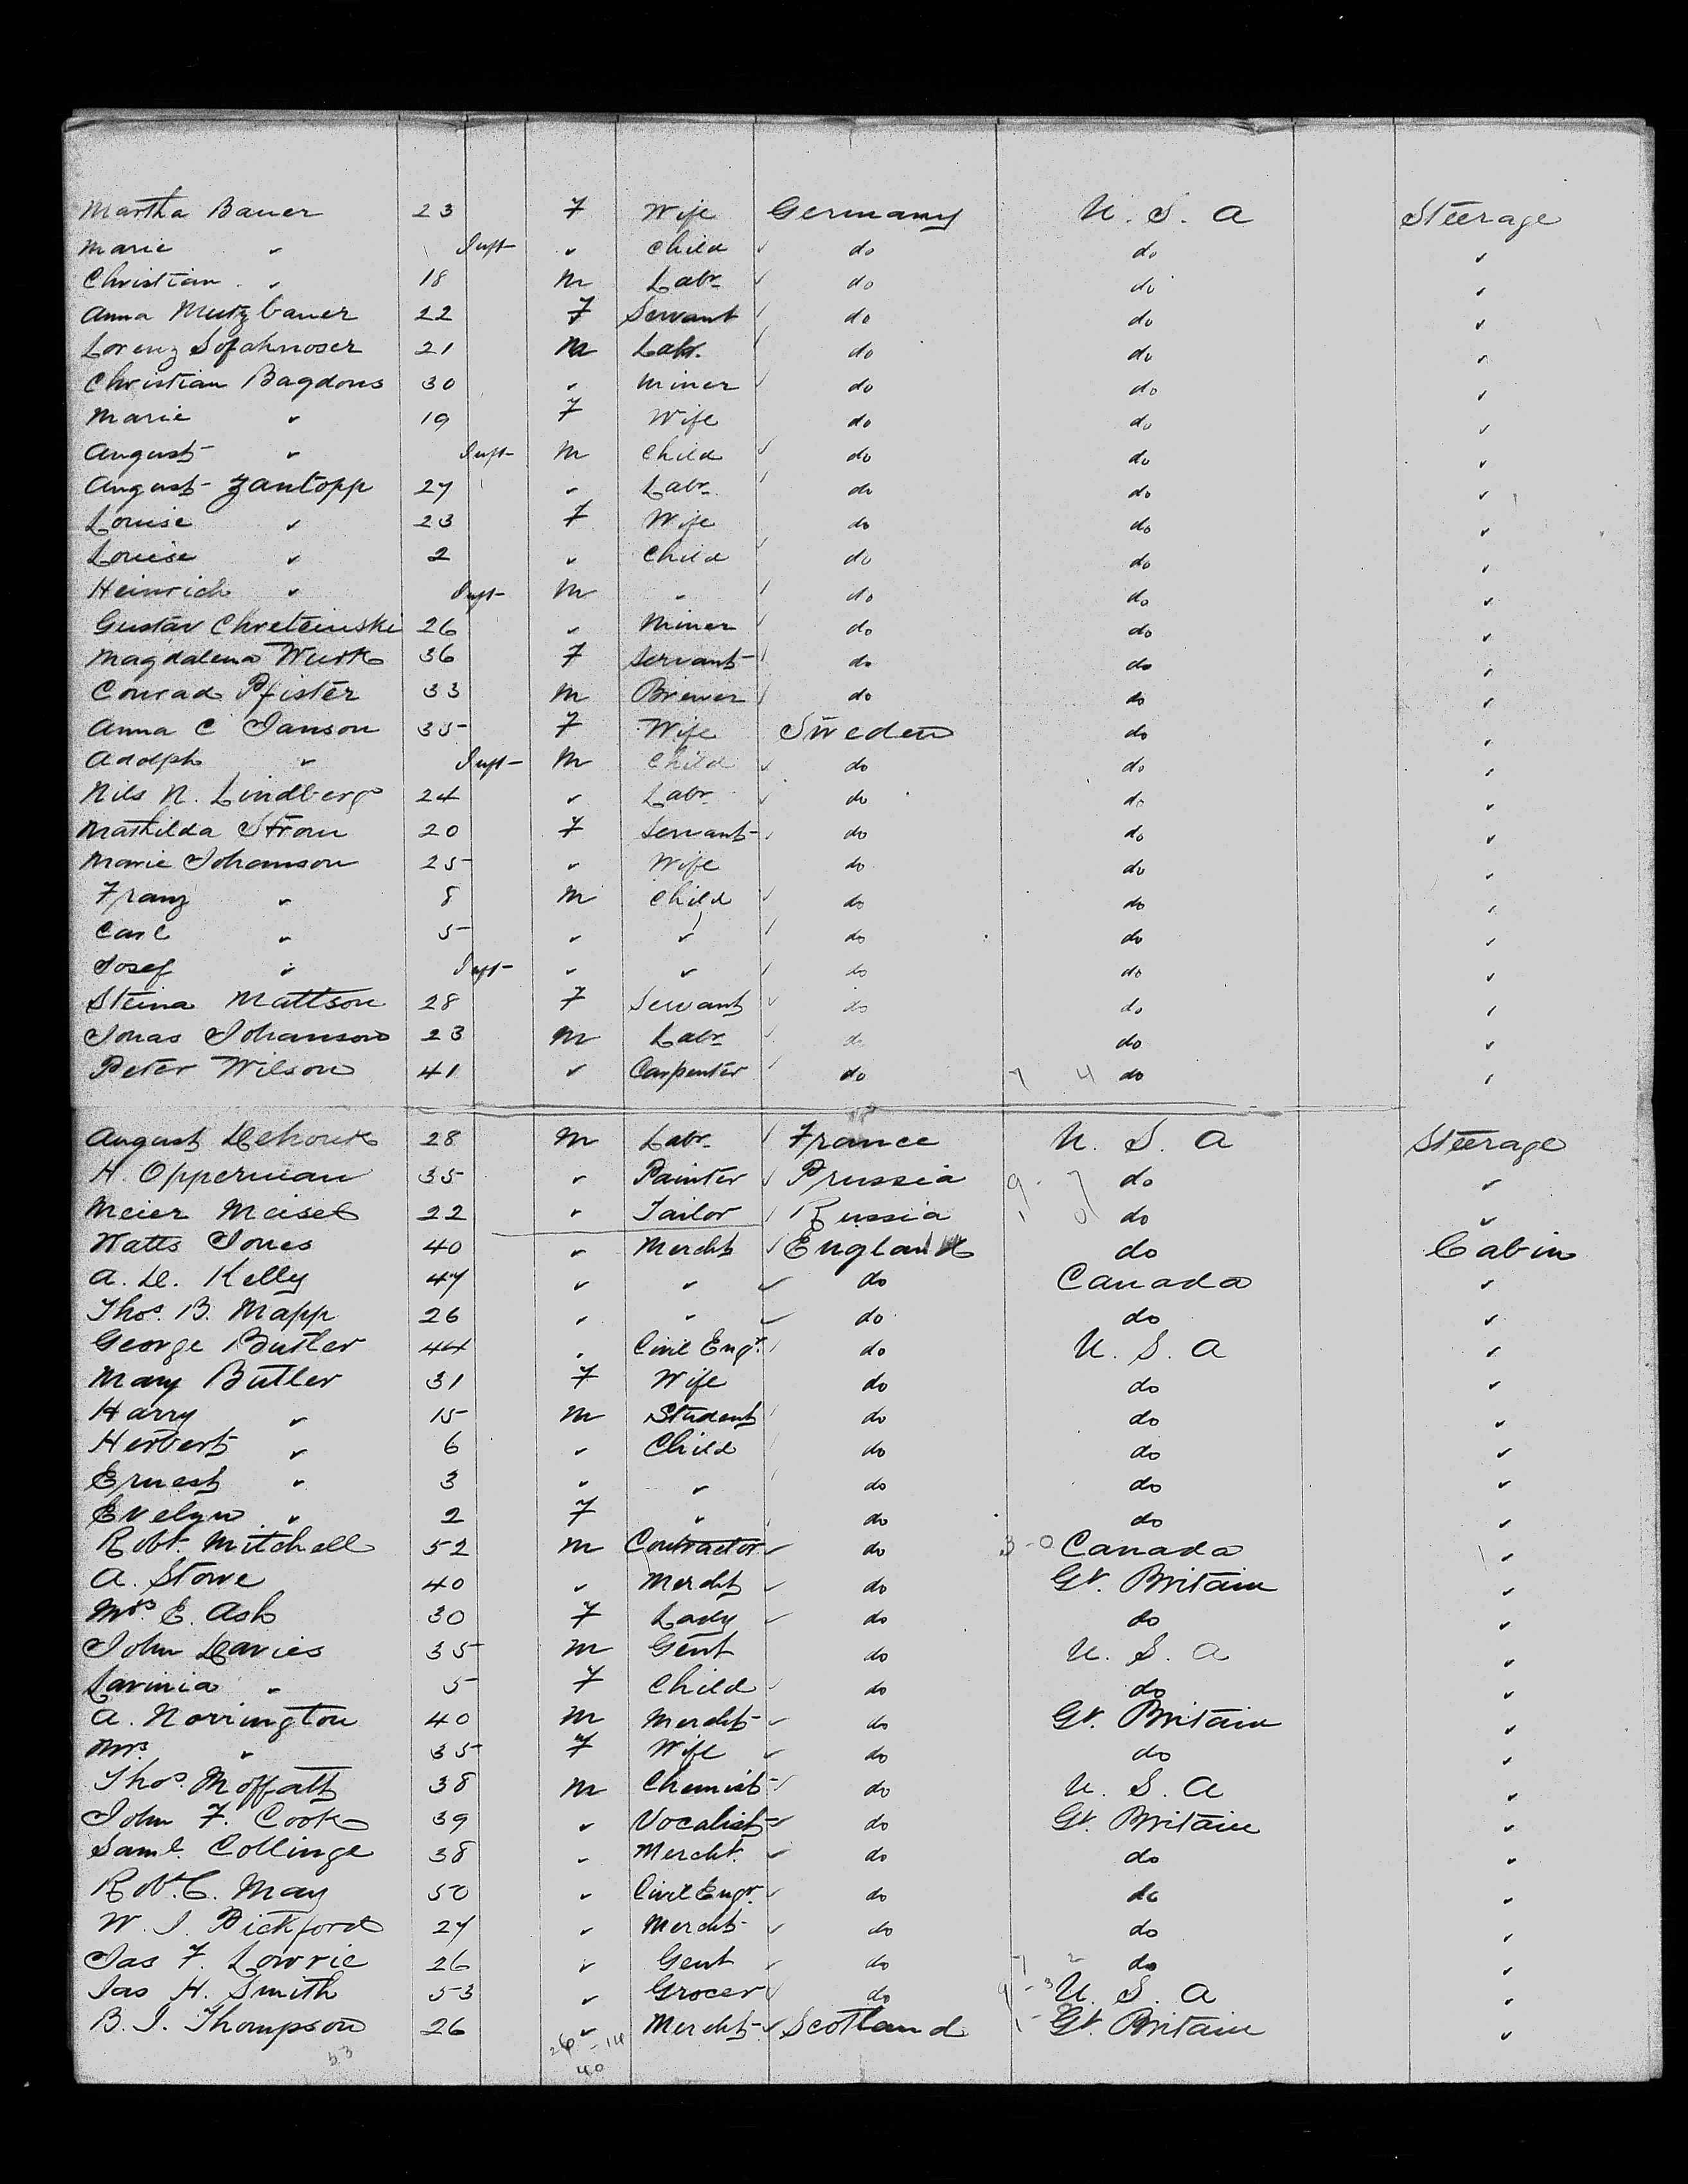 Martha Bauer 23 F Wife Germany U. S. A Steerage
Marie " Inft " Child do do "
Christian " 18 M Labr do do "
Anna Mutzbauer 22 F Servant do do "
Lorenz 21 M Labr. do do "
Christian Bagdons 30 " Miner do do "
Marie " 19 F Wife do do "
August " Inft M Child do do "
August Zantopp 27 " Labr. do do "
Louise " 23 F Wife do do "
Louise " 2 " Child do do "
Heinrich " Inft M " do do "
Gustav Chreteinski 26 " Miner do do "
Magdalena Wurk 36 F Servant do do "
Conrad Pfister 33 M Brewer do do "
Anna C Janson 35 F Wife Sweden do "
Adolph " Inft M Child do do "
Nils N. Lindberg 24 " Labr do do "
Mathilda Strom 20 F Servant do do "
Marie Johanson 25 " Wife do do "
Franz " 8 M Child do do "
Carl " 5 " " do do "
Josef " Inft " " do do "
Steina Mattson 28 F Servant do do "
Jonas Johanson 23 M Labr do do "
Peter Wilson 41 " Carpenter do 7 4 do "
August 28 M Labr. France U. S. A Steerage
H. Opperman 35 " Painter Prussia 9 - 7 do "
Meier Meisel 22 " Tailor Russia 1 0 do "
Watts Jones 40 " Mercht England do Cabin
A. D. Kelly 47 " " do Canada "
Thos. B. Mapp 26 " " do do "
George Butler 44 " Civil Engr. do U. S. A "
Mary Butler 31 F Wife do do "
Harry " 15 M Student do do "
Herbert " 6 " Child do do "
Ernest " 3 " " do do "
Evelyn " 2 F " do do "
Robt. Mitchell 52 M Contractor do 3 - 0 Canada "
A. Stowe 40 " Mercht do Gt. Britain "
Mrs. E. Ash 30 F Lady do do "
John Davies 35 M Gent do U. S. A "
Lavinia " 5 F Child do do "
A. Norrington 40 M Mercht do Gt. Britain "
Mrs. " 35 F Wife do do "
Thos. Moffatt 38 M Chemist do U. S. A "
John F. Cook 39 " Vocalist do Gt. Britain "
Saml. Collinge 38 " Mercht. do do "
Robt. C. May 50 " Civil Engr. do do "
W. J. Bickford 27 " Mercht do do "
Jas F. Lowrie 26 " Gent do do "
Jas H. Smith 53 " Grocer do U. S. A "
B. J. Thompson 26 " Mercht Scotland Gt. Britain "
53 26 - 14
40